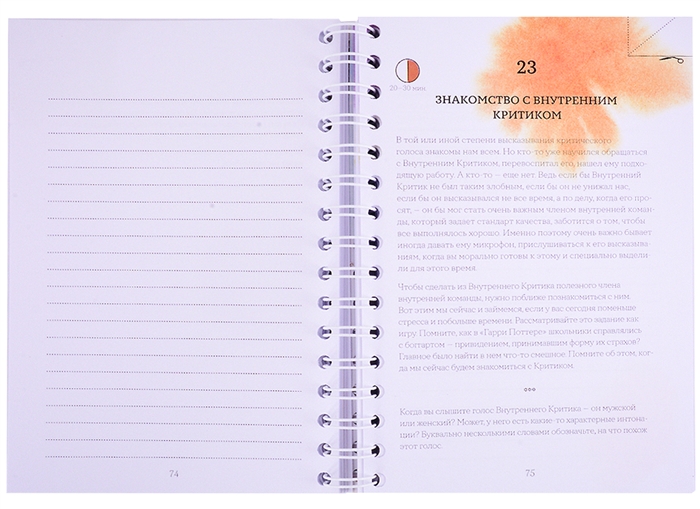 74
20–30 мин
23
ЗНАКОМСТВО С ВНУТРЕННИМ
КРИТИКОМ
В той или иной степени высказывания критического
голоса знакомы нам всем. Но кто-то уже научился обращаться
с Внутренним Критиком, перевоспитал его, нашел ему подхо-
дящую работу. А кто-то — еще нет. Ведь если бы Внутренний
Критик не был таким злобным, если бы он не унижал нас,
если бы он высказывался не все время, а по делу, когда его про-
сят, — он бы мог стать очень важным членом внутренней коман-
ды, который задает стандарт качества, заботится о том, чтобы
все выполнялось хорошо. Именно поэтому очень важно бывает
иногда давать ему микрофон, прислушаться к его высказыва-
ниям, когда вы морально готовы к этому и специально выдели-
ли для этого время.
Чтобы сделать из Внутреннего Критика полезного члена
внутренней команды, нужно поближе познакомиться с ним.
Вот этим мы сейчас и займемся, если у вас сегодня поменьше
стресов и побольше времени. Рассматривайте это задание как
игру. Помните, как в «Гарри Поттере» школьники справлялись
с боггартом — привидением, принимавшим форму их страхов?
Главное было найти в нем что-то смешное. Помните об этом, ког-
да мы сейчас будем знакомиться с Критиком.
Когда вы слышите голос Внутреннего Критика — он мужской
или женский? Может, у него есть какие-то характерные интона-
ции? Буквально несколькими словами обозначьте, на что похож
этот голос.
75